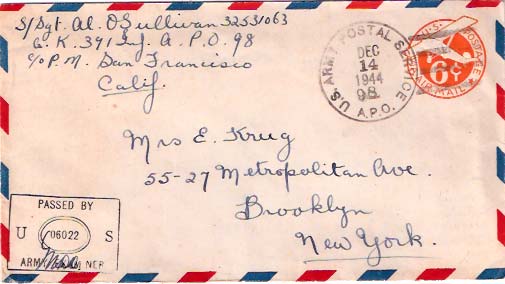 S/Sgt. Al. O'Sullivan 32531063
Co. K. 391 Inf. A.P.O. 98
c/o P.M. San Francisco
Calif.
U.S. ARMY POSTAL SERVICE
DEC
14
1944
98
A.P.O.
U.S. POSTAGE
6¢
AIR MAIL
Mrs E. Krug
55-27 Metropolitan Ave.
Brooklyn
New York.
PASSED BY
U 06022 S
ARMY NER